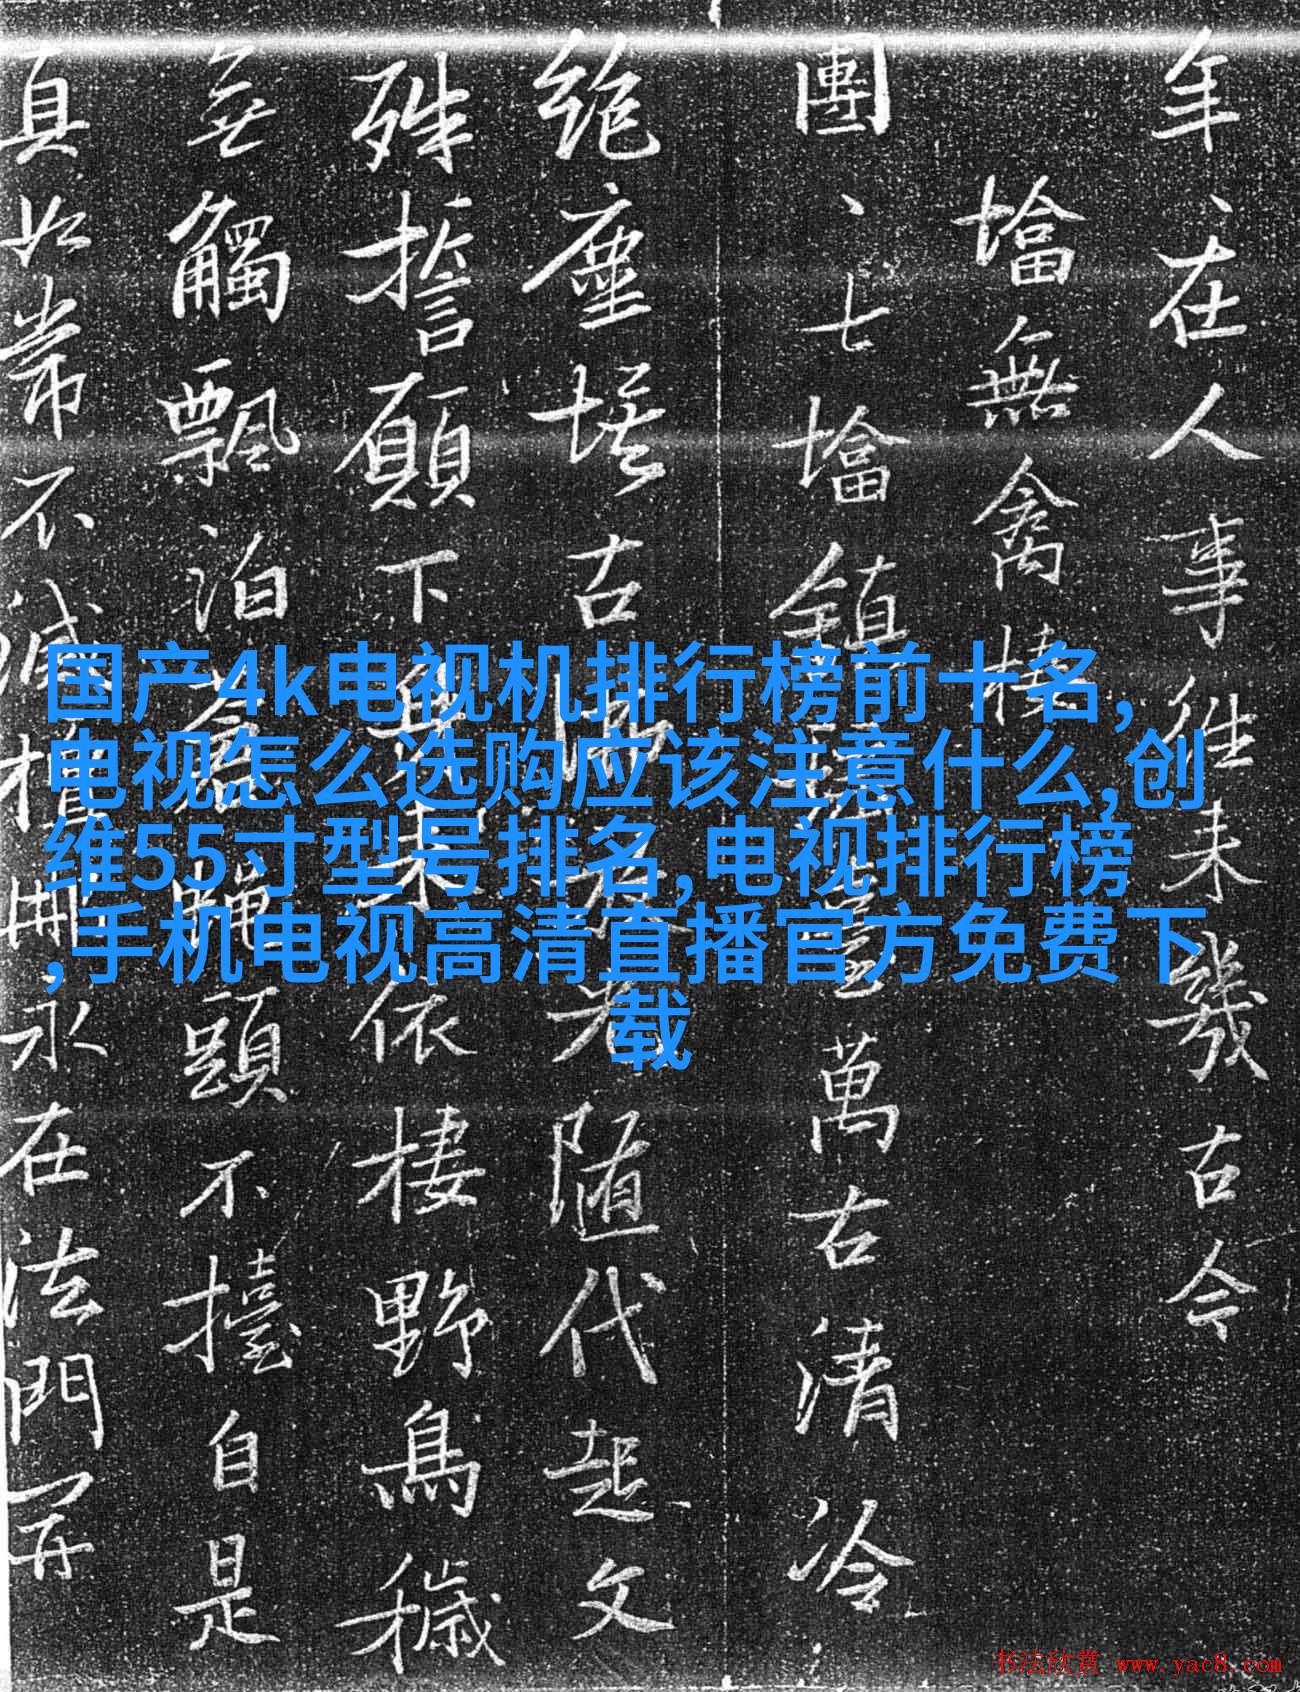 年、在人事往未幾古今
墖無禽棲
團、七墖鎮
萬古清冷
絶塵埃古
随代起文
殊誓願下
依棲野鳥穢
無觸飄泊
頭不擡自是
真如常不滅
永在法門開
国产4k电视机排行榜前十名,
电视怎么选购应该注意什么,创
维55寸型号排名,电视排行榜
,手机电视高清直播官方免费下
载
书法欣赏 www.yac8.com